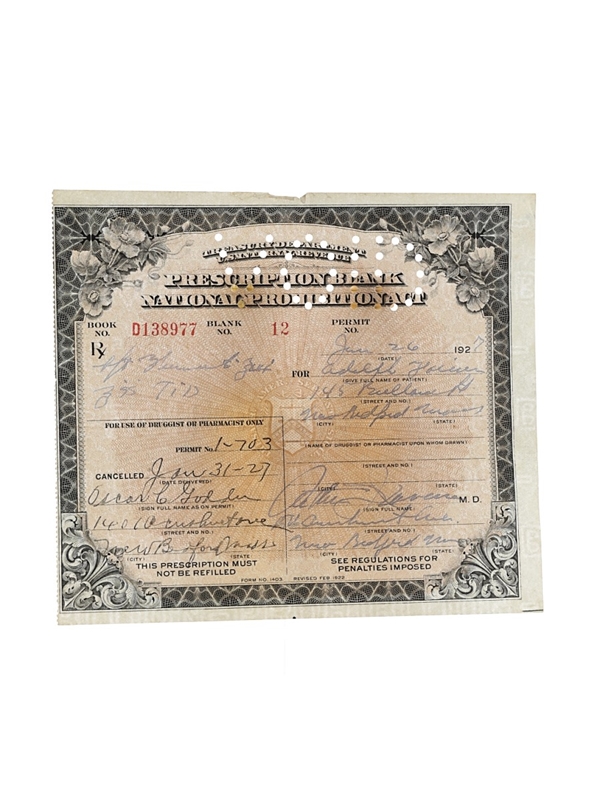 TREASURY DEPARTMENT
U.S. INTERNAL REVENUE
PRESCRIPTION BLANK
NATIONAL PROHIBITION ACT
BOOK NO. D138977 BLANK NO. 12 PERMIT NO.
Jan 26 1927
(DATE)
℞
FOR Adolph
(GIVE FULL NAME OF PATIENT)
145
(STREET AND NO.)
New Bedford Mass
(CITY) (STATE)
FOR USE OF DRUGGIST OR PHARMACIST ONLY
PERMIT NO. 1-703
CANCELLED Jan 31-27
(DATE DELIVERED)
Oscar C.
(SIGN FULL NAME AS ON PERMIT)
1401 Acushnet ave
(STREET AND NO.)
New Bedford Mass
(CITY) (STATE)
THIS PRESCRIPTION MUST
NOT BE REFILLED
(NAME OF DRUGGIST OR PHARMACIST UPON WHOM DRAWN)
(STREET AND NO.)
(CITY) (STATE)
M.D.
(SIGN FULL NAME)
(STREET AND NO.)
New Bedford Mass
(CITY) (STATE)
SEE REGULATIONS FOR
PENALTIES IMPOSED
FORM NO. 1403 REVISED FEB. 1922